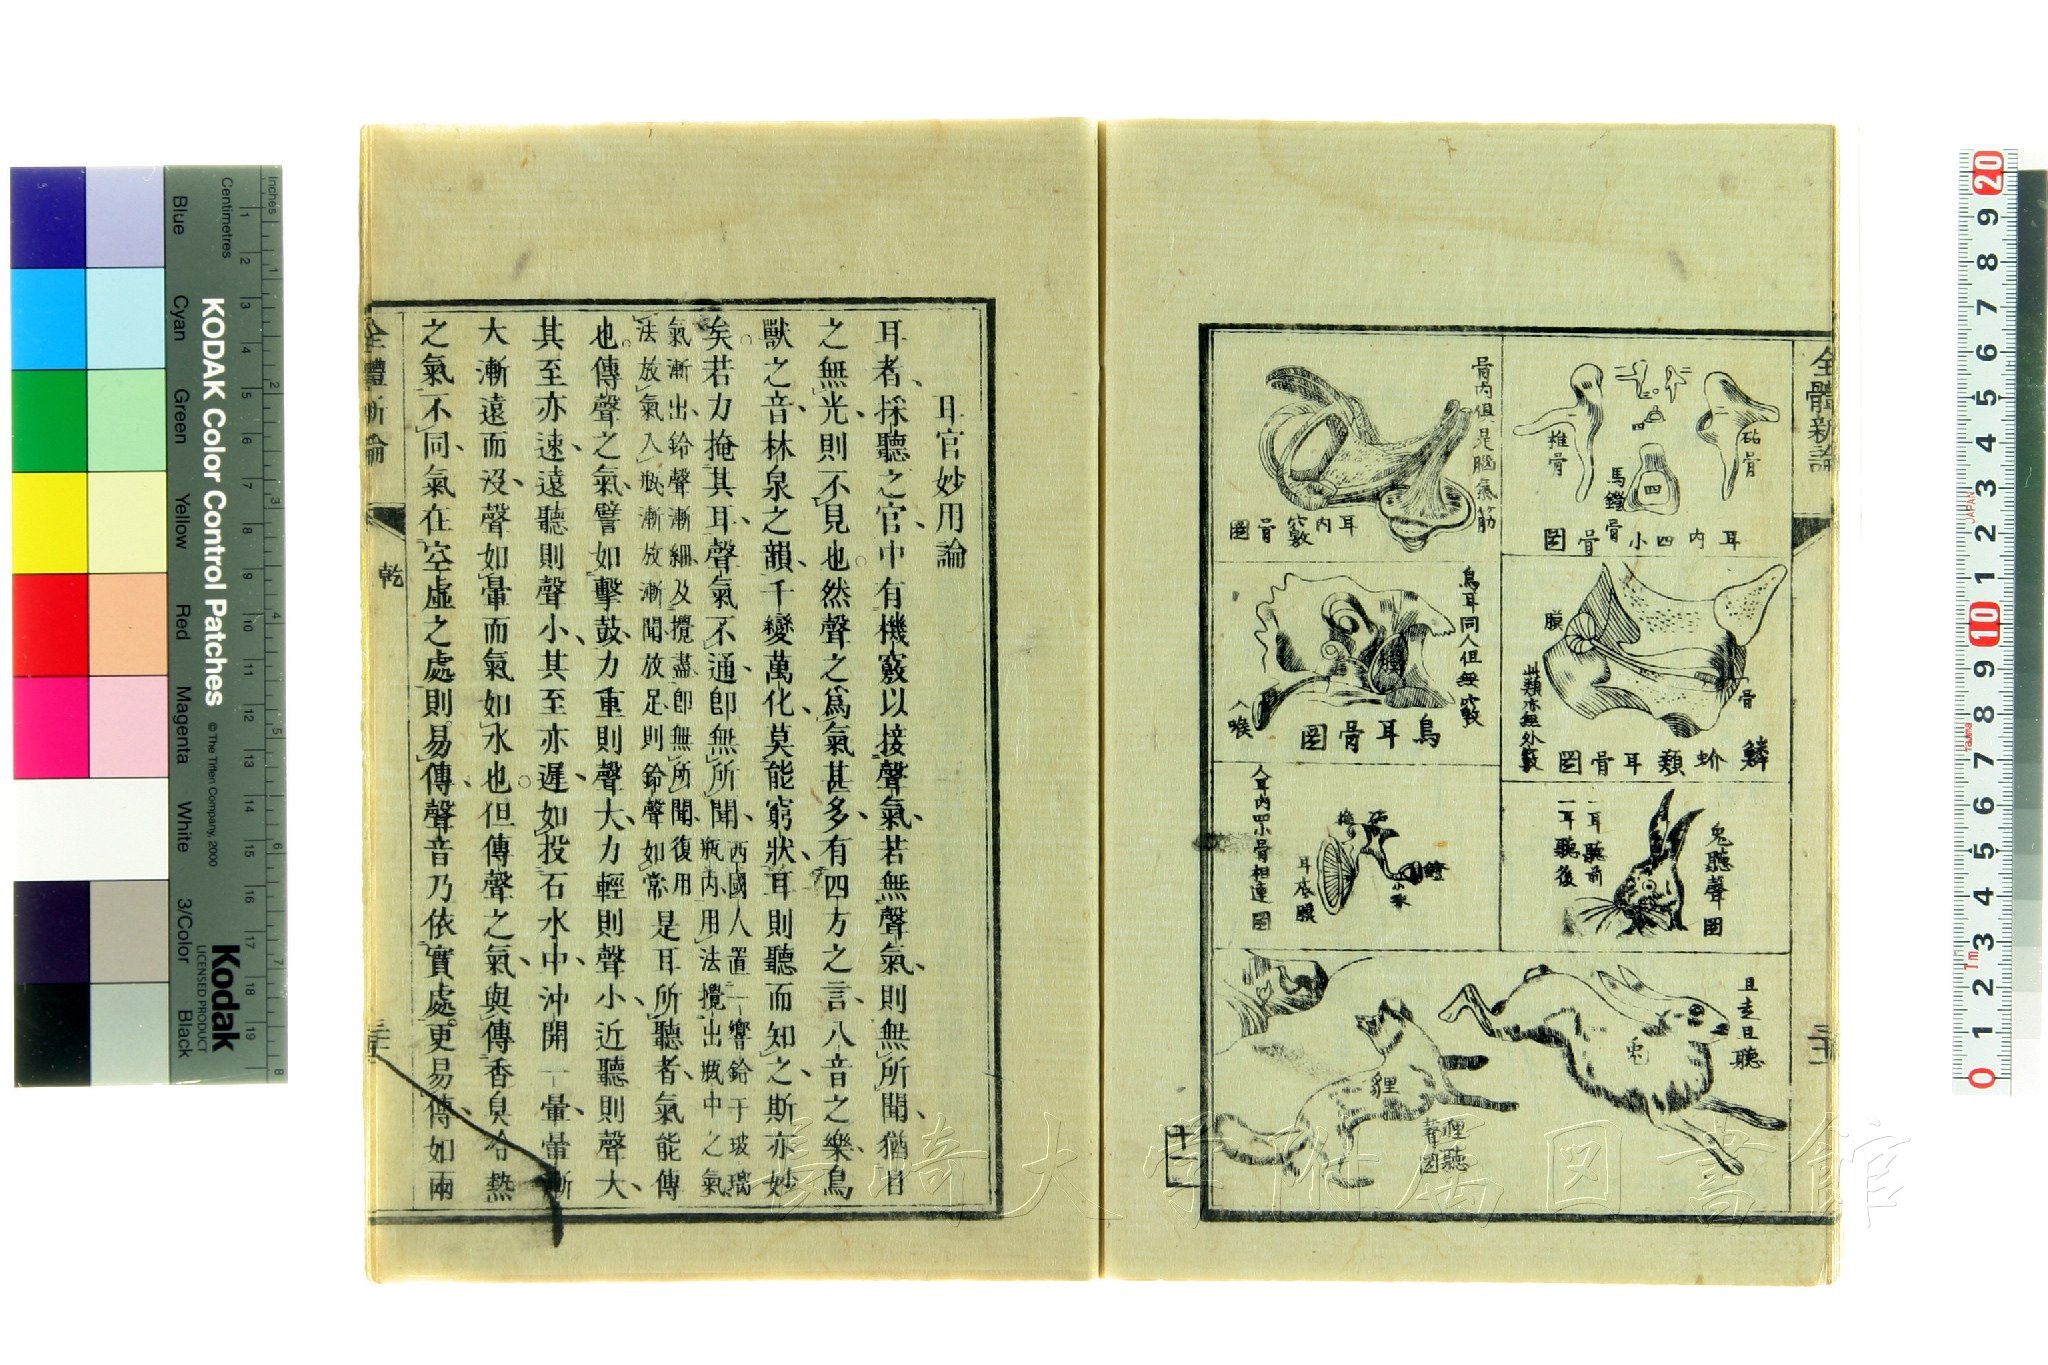 全體新論
椎骨
馬鐙骨
四
砧骨
耳内四小骨圖
骨内俱是腦氣筋
耳内竅骨圖
膜
骨
此類亦無外竅
鱗蚧類耳骨圖
鳥耳同人但無竅
膜
入喉
鳥耳骨圖
兔聽聲圖
一耳聽前
一耳聽後
人耳内四小骨相連圖
砧
鐙
小珠
耳底膜
且走且聽
兔
狸
狸聽聲圖
耳官妙用論
耳者採聽之官中有機竅以接聲氣若無聲氣則無所聞猶目
之無光則不見也然聲之爲氣甚多有四方之言八音之樂鳥
獸之音林泉之韻千變萬化莫能窮狀耳則聽而知之斯亦妙
矣若力掩其耳聲氣不通卽無所聞
西國人置一響鈴于玻璃
瓶内用法攪出瓶中之氣
氣漸出鈴聲漸細及攪盡卽無所聞復用
法放氣入瓶漸放漸聞放足則鈴聲如常
是耳所聽者氣能傳
也傳聲之氣譬如擊鼓力重則聲大力輕則聲小近聽則聲大
其至亦速遠聽則聲小其至亦遲如投石水中沖開一暈暈漸
大漸遠而沒聲如暈而氣如水也但傳聲之氣與傳香臭冷熱
之氣不同氣在空虛之處則易傳聲音乃依實處更易傳如兩
全體新論
乾
KODAK Color Control Patches
© The Tiffen Company, 2000
Kodak
LICENSED PRODUCT
Inches
Centimetres
Blue
Cyan
Green
Yellow
Red
Magenta
White
3/Color
Black
1 2 3 4 5 6 7 8 9 10 11 12 13 14 15 16 17 18 19
1 2 3 4 5 6 7 8
20 9 8 7 6 5 4 3 2 1 10 9 8 7 6 5 4 3 2 1 0
JAPAN
Tajima
1m
長崎大学附属図書館